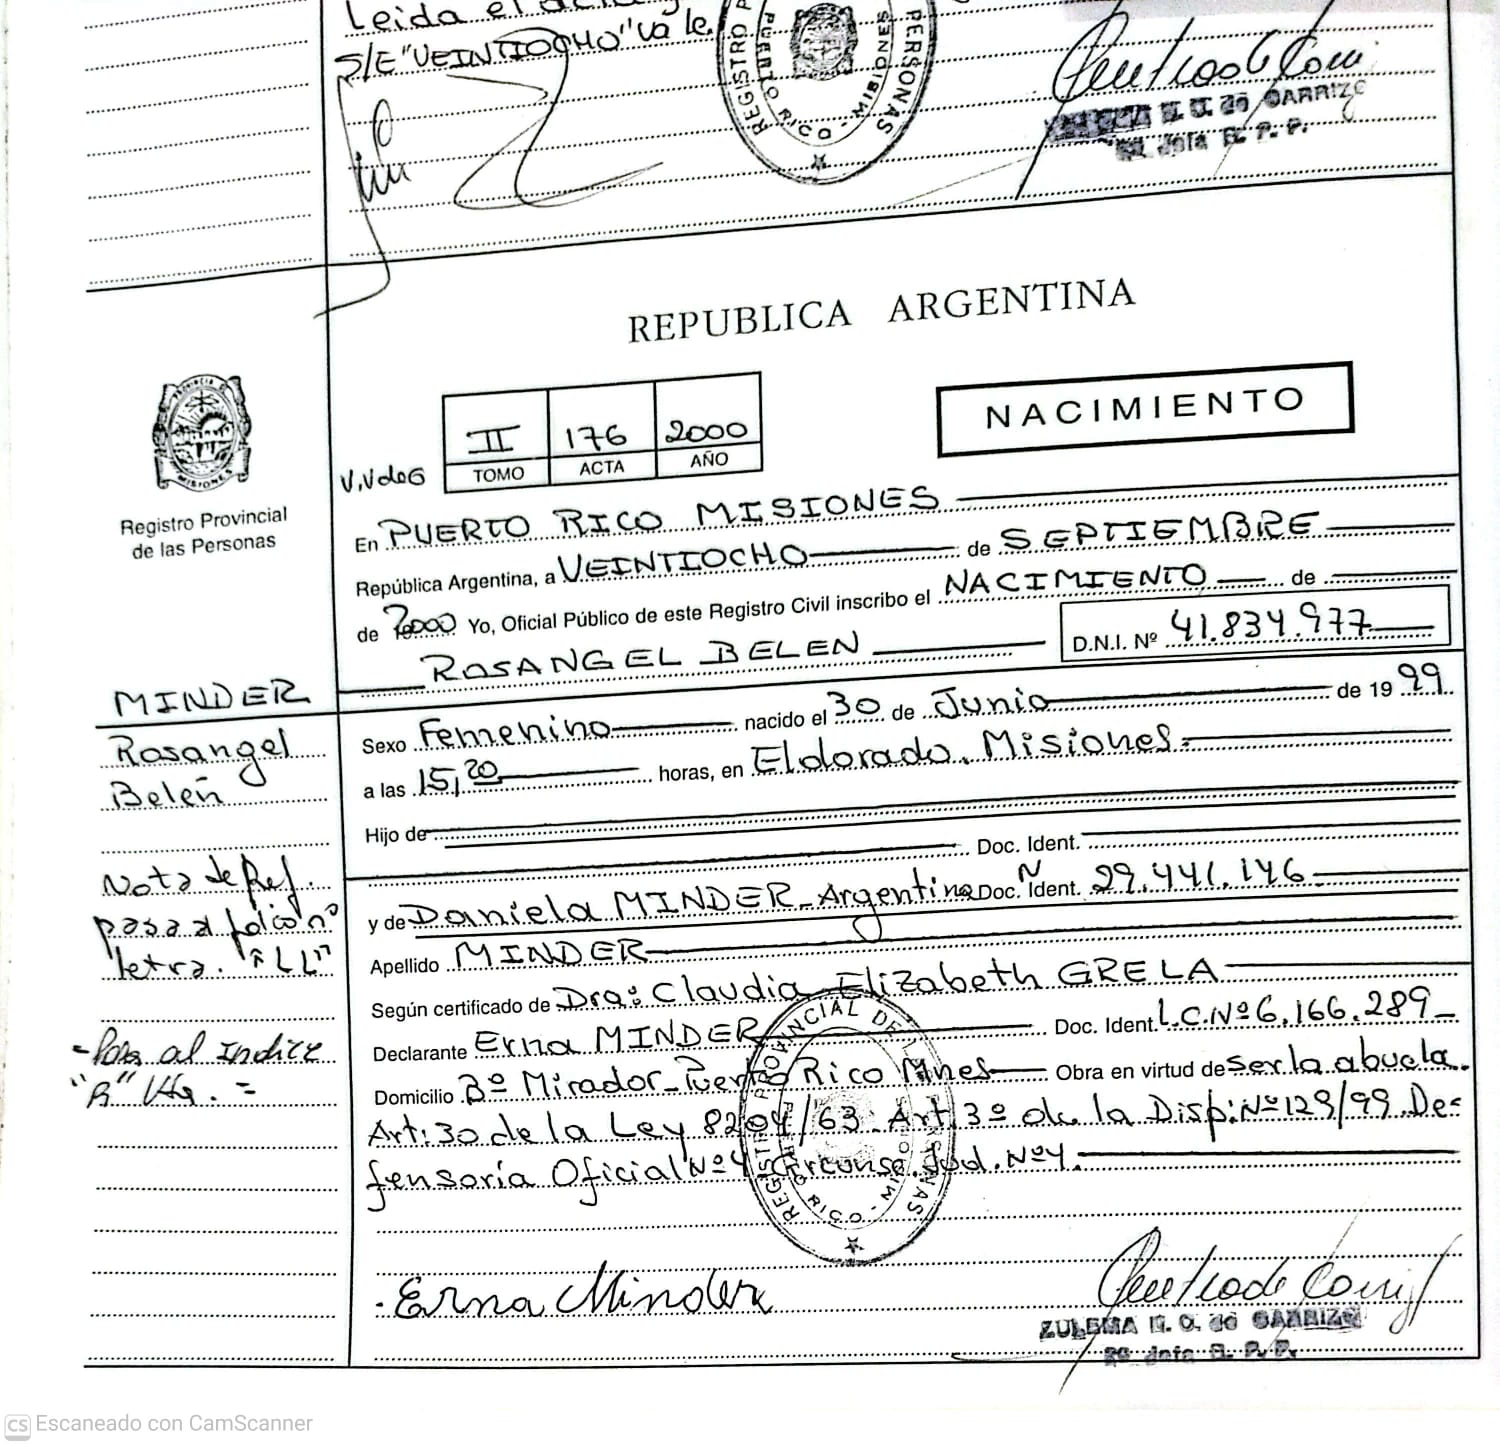 Leida el acta
S/E "VEINTIOCHO" vale.
REGISTRO P PERSONAS
PUERTO RICO - MISIONES
M. O. de CARRIZO
R. P. P.
REPUBLICA ARGENTINA
NACIMIENTO
II 176 2000
V.V de G TOMO ACTA AÑO
PROVINCIA DE
MISIONES
Registro Provincial
de las Personas
En PUERTO RICO MISIONES
República Argentina, a VEINTIOCHO de SEPTIEMBRE
de 2000 Yo, Oficial Público de este Registro Civil inscribo el NACIMIENTO de
ROSANGEL BELEN D.N.I. Nº 41.834.977
MINDER
Rosangel
Belén
Sexo Femenino nacido el 30 de Junio de 19 99
a las 15,20 horas, en Eldorado, Misiones.
Hijo de
Doc. Ident.
y de Daniela MINDER - Argentina Doc. Ident. Nº 29.441.146
Apellido MINDER
Según certificado de Dra: Claudia Elizabeth GRELA
Declarante Erna MINDER Doc. Ident. L.C. Nº 6.166.289
Domicilio Bº Mirador - Puerto Rico Mnes Obra en virtud de ser la abuela.
Art: 30 de la Ley 8204/63 - Art. 3º de la Disp: Nº 129/99 De=
fensoría Oficial Nº 4 Circunsc. Jud. Nº 4.
Nota de Ref.
pasa al folio nº
letra. "LL"
- Pasa al Indice
"R"
REGISTRO PROVINCIAL DE LAS PERSONAS
PUERTO RICO - MISIONES
Erna Minder
ZULEMA M. O. de CARRIZO
R. P. P.
CS Escaneado con CamScanner